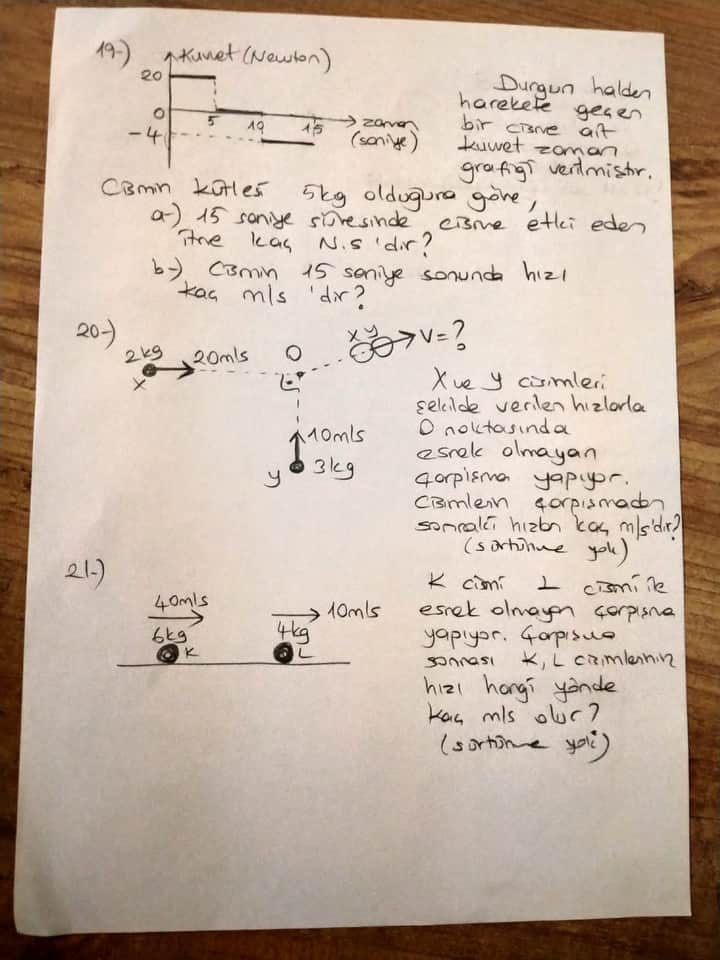 19-)
Kuvvet (Newton)
20
0
5 10 15
zaman
(saniye)
-4
Durgun halden
harekete geçen
bir cisme ait
kuvvet zaman
grafiği verilmiştir.
Cismin kütlesi 5kg olduğuna göre,
a-) 15 saniye süresinde cisme etki eden
itme kaç N.s 'dir?
b-) Cismin 15 saniye sonunda hızı
kaç m/s 'dir?
20-)
2kg
X
20m/s
O
X Y
V=?
10m/s
Y 3kg
X ve Y cisimleri
şekilde verilen hızlarla
O noktasında
esnek olmayan
çarpışma yapıyor.
Cisimlerin çarpışmadan
sonraki hızları kaç m/s'dir?
(sürtünme yok)
21-)
40m/s
6kg
K
10m/s
4kg
L
K cismi L cismi ile
esnek olmayan çarpışma
yapıyor. Çarpışma
sonrası K, L cisimlerinin
hızı hangi yönde
kaç m/s olur?
(sürtünme yok)